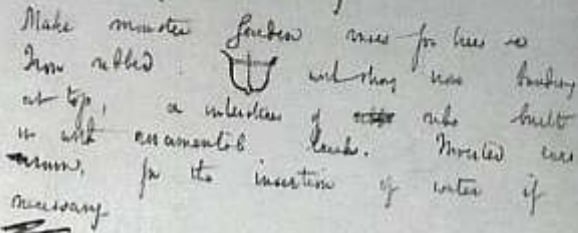 Make monster garden vases for trees so
Iron ribbed with strong iron banding
at top, a interstices of ribs built
in with ornamental bricks. Inverted
for the insertion of water if
necessary